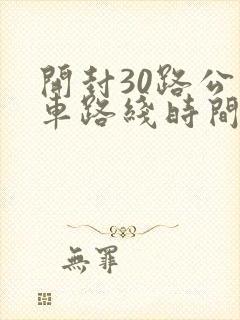 開封30路公
車路綫時間
無罪